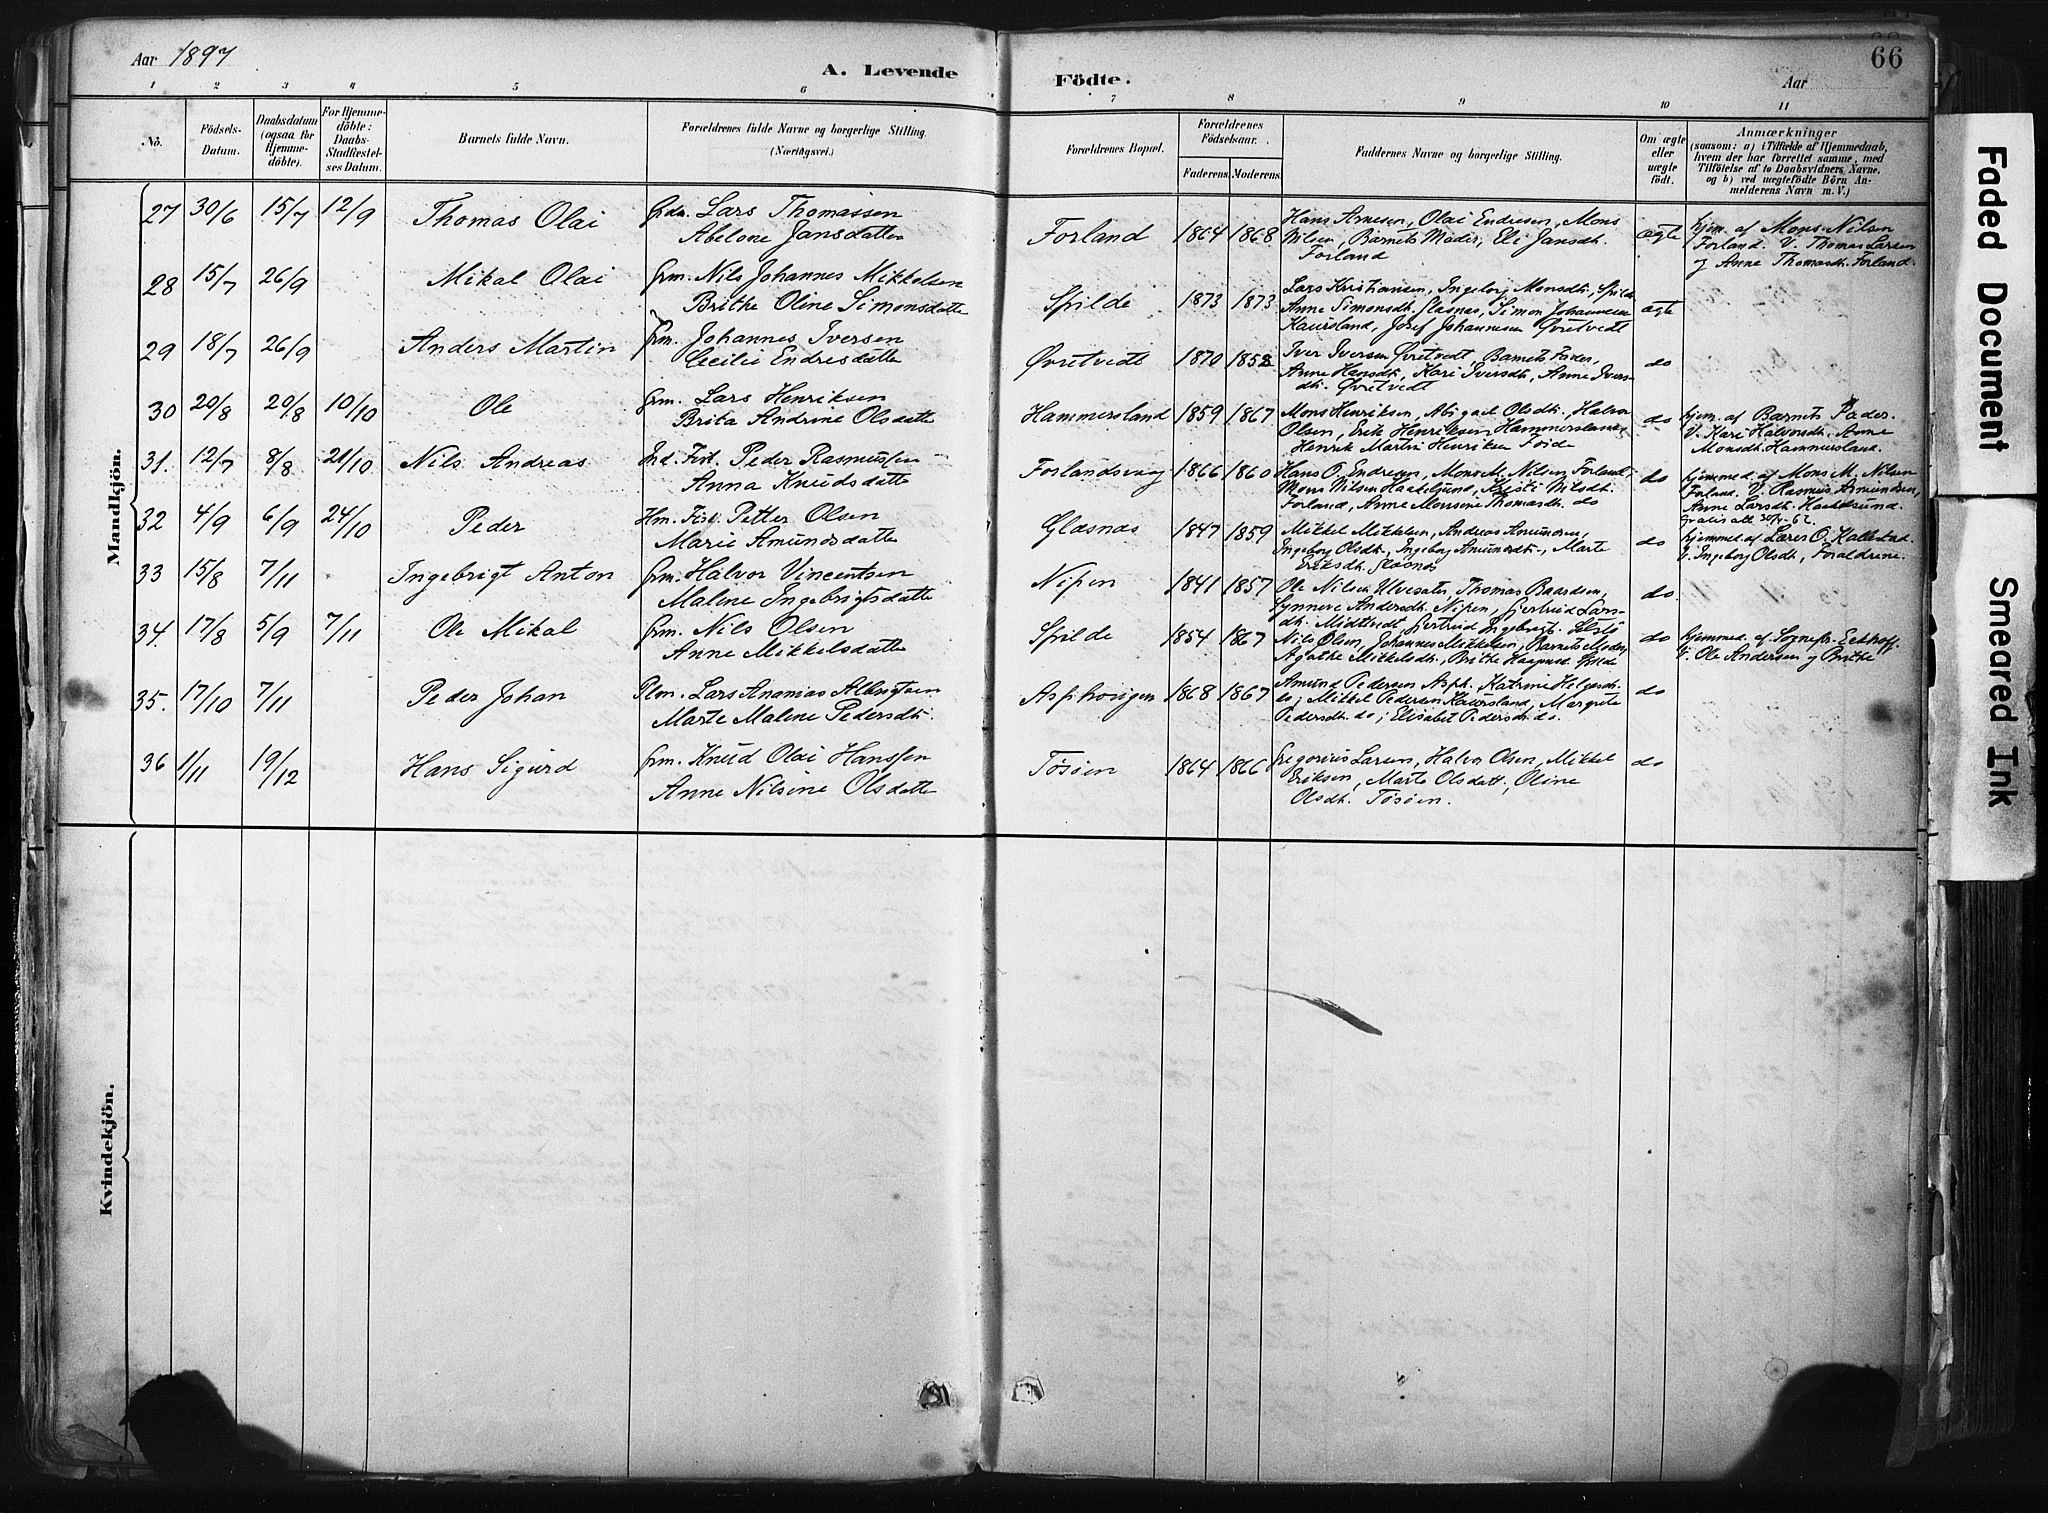 Aar 1897
A. Levende
Födte.
Aar
66
1 2 3 4 5 6 7 8 9 10 11
No.
Födsels-
Datum.
Daabsdatum
(ogsaa for
Hjemme-
döbte).
For Hjemme-
döbte:
Daabs-
Stadfæstel-
ses Datum.
Barnets fulde Navn.
Forældrenes fulde Navne og borgerlige Stilling.
(Næringsvei.)
Forældrenes Bopæl.
Forældrenes
Födselsaar.
Faderens. Moderens.
Faddernes Navne og borgerlige Stilling.
Om ægte
eller
uægte
födt.
Anmærkninger
(saasom: a) i Tilfælde af Hjemmedaab,
hvem der har forrettet samme, med
Tilföielse af to Daabsvidners Navne,
og b) ved uægtefödte Börn An-
melderens Navn m. V.)
Mandkjön.
27 30/6 15/7 12/9 Thomas Olai Lars Thomassen
Abelone Jansdatter
Forland 1864 1868 Hans Arnesen, Olai Endresen, Mons
Nilsen, Barnets Moder, Eli Jansdt.
Forland
ægte hjem. af Mons Nilsen
Forland. V. Thomas Larsen
og Anne Thomasdt. Forland.
28 15/7 26/9 Mikal Olai Grm. Nils Johannes Mikkelsen
Brithe Oline Simonsdatter
Spilde 1873 1873 Lars Kristiansen, Ingeborg Monsdt., Spilde
Anne Simonsdt. Glasnæs, Simon Johannesen
Kaursland, Josef Johannesen Øvretvedt
ægte
29 18/7 26/9 Anders Martin Grm. Johannes Iversen
Cecilie Endresdatter
Øvretvedt 1870 1858 Iver Iversen Øvretvedt Barnets Fader,
Anne Hansdt., Kari Iversdt., Anne Ivers-
dt. Øvretvedt
do
30 20/8 20/8 10/10 Ole Grm. Lars Henriksen
Brita Andrine Olsdatter
Hammersland 1859 1867 Mons Henriksen, Abigael Olsdt., Halvor
Olsen, Erik Henriksen Hammersland,
Henrik Martin Henriksen Foide
do hjem. af Barnets Fader.
V. Kari Halvorsdt. Anne
Monsdt. Hammersland.
31. 12/7 8/8 21/10 Nils Andreas Ind. Fist. Peder Rasmussen
Anna Knudsdatter
Forlandsvaag 1866 1860 Hans O. Endresen, Mons M. Nilsen Forland,
Mons Nilsen Haakelsund, Kristi Nilsdt.
Forland, Anne Monsine Thomasdt. do
do hjemmed. af Mons M. Nilsen
Forland. V. Rasmus Amundsen,
Anne Larsdt. Haakelsund.
32 4/9 6/9 24/10 Peder Hm. Fisk. Petter Olsen
Marie Amundsdatter
Glasnæs 1847 1859 Mikkel Mikkelsen, Andreas Amundsen,
Ingeborg Olsdt., Ingeborg Amundsdt., Marte
Eriksdt. Glasnæs
do hjemmed. af Lærer O. Kallestad.
V. Ingeborg Olsdt., Forældrene.
33 15/8 7/11 Ingebrigt Anton Grm. Halvor Vincentsen
Malene Ingebrigtsdatter
Nipen 1841 1857 Ole Nilsen Ulvesæter, Thomas Baardsen,
Synneve Andersdt. Nipen, Gertrud Lars-
dt. Midttvedt, Gertrud Ingebrigt.
do.
34. 17/8 5/9 7/11 Ole Mikal Grm. Nils Olsen
Anne Mikkelsdatter
Spilde 1854 1867 Nils Olsen, Johannes Mikkelsen, Barnets Moder,
Agathe Mikkelsdt., Brithe Haagensd. Spilde
do hjemmed. af Sognepr. Eckhoff.
V. Ole Andersen og Brithe
35. 17/10 7/11 Peder Johan Plm. Lars Ananias Albrigtsen
Marte Malene Pedersdt.
Asphougen 1868 1867 Amund Pedersen Asph. Katrine Helgesdt.
do; Mikkel Pedersen Kaursland, Margrete
Pedersdt. do; Elisabet Pedersdt. do.
do
36 1/11 19/12 Hans Sigurd Grm. Knud Olai Hanssen
Anne Nilsine Olsdatter
Tøsøen 1864 1866 Gregorius Larsen, Halvor Olsen, Mikkel
Eriksen, Marte Olsdatt., Oline
Olsdt. Tøsøen.
do
Kvindekjön.
Faded Document
Smeared Ink